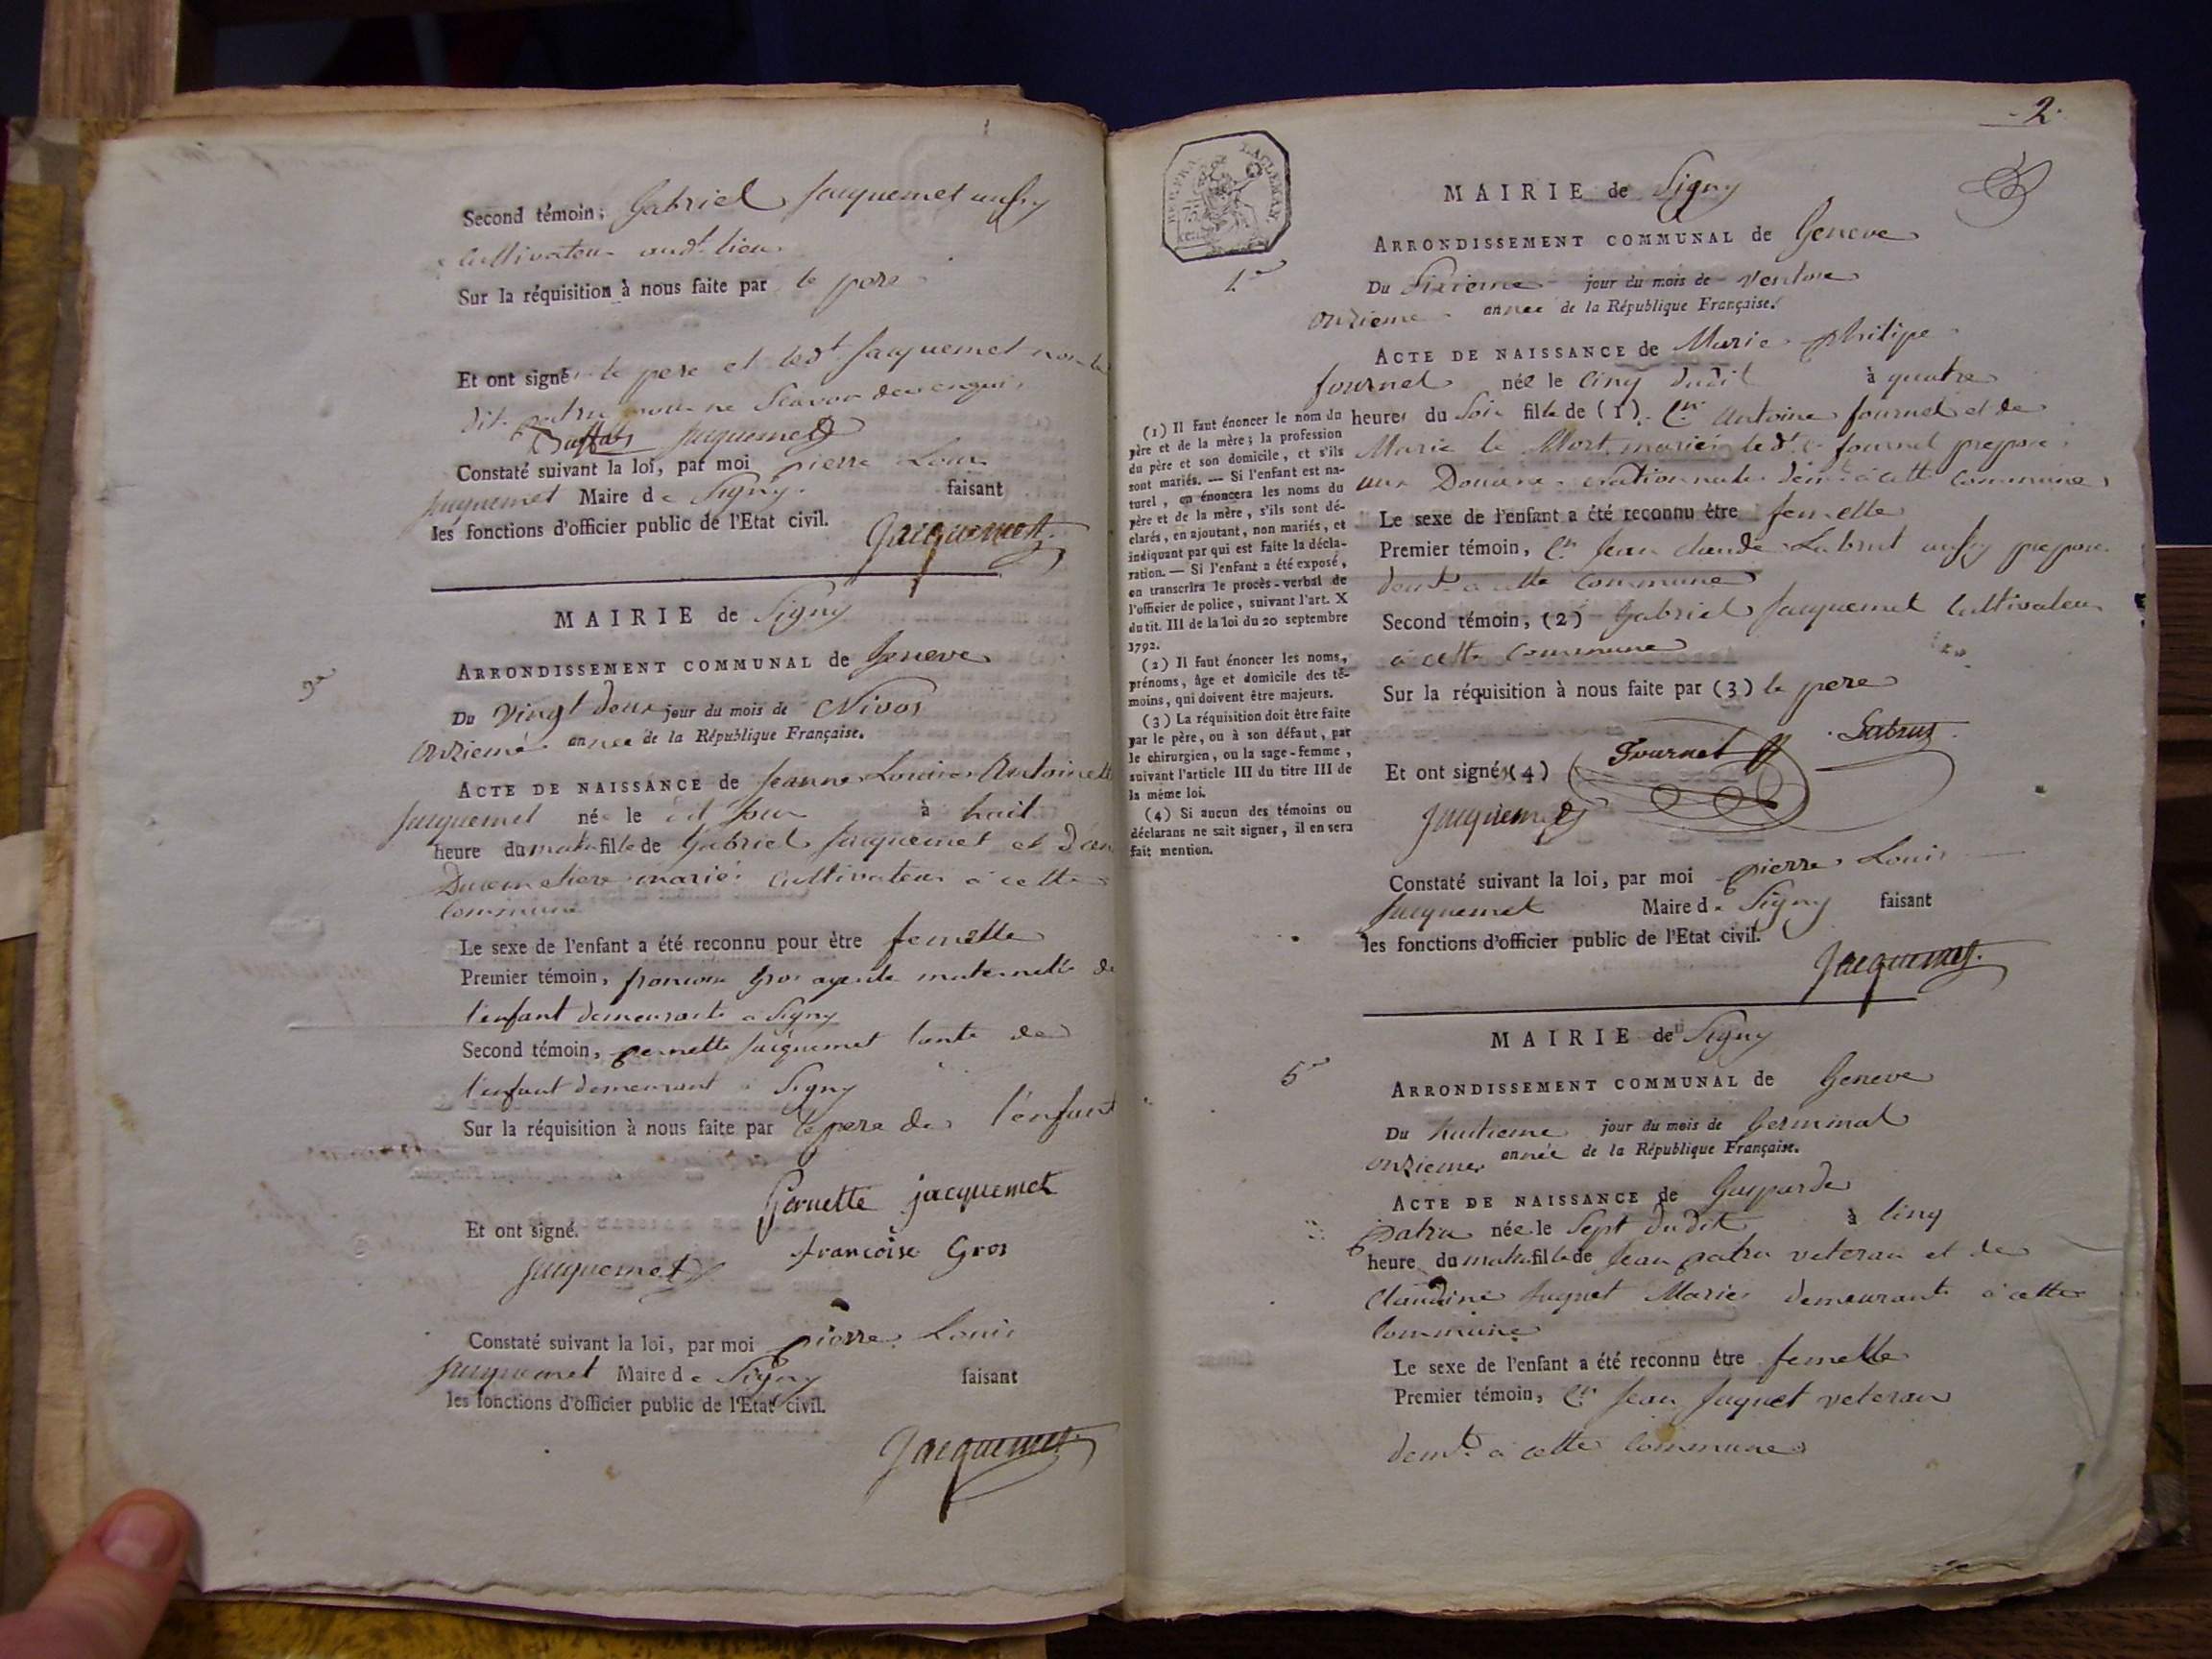 Second témoin; Gabriel Jacquemet aussy
Cultivateur audt. lieu
Sur la réquisition à nous faite par le pere
Et ont signé le pere et ledt. Jacquemet non le
dit patru pour ne Scavoir de ce enquis
Jacquemet
Constaté suivant la loi, par moi pierre Louis
Jacquemet Maire de Signy. faisant
les fonctions d'officier public de l'Etat civil.
Jacquemet
MAIRIE de Signy
ARRONDISSEMENT COMMUNAL de Geneve
3e
Du Vingt deux jour du mois de Nivos
onzieme année de la République Française.
ACTE DE NAISSANCE de Jeanne Louise Antoinette
Jacquemet née le dit jour à huit
heure du matin fille de Gabriel Jacquemet et
mariés Cultivateur à cette
Commune
Le sexe de l'enfant a été reconnu pour être femelle
Premier témoin, francoise Gros ayeule maternelle de
l'enfant demeurante a Signy
Second témoin, pernette Jacquemet tante de
l'enfant demeurant a Signy
Sur la réquisition à nous faite par le pere de l'enfant
Pernette jacquemet
Et ont signé.
francoise Gros
Jacquemet
Constaté suivant la loi, par moi pierre Louis
Jacquemet Maire de Signy faisant
les fonctions d'officier public de l'Etat civil.
Jacquemet
2
MAIRIE de Signy
ARRONDISSEMENT COMMUNAL de Geneve
Du Sixieme jour du mois de Ventose
onzieme année de la République Française.
ACTE DE NAISSANCE de Marie philipe
fournet née le Cinq dudit à quatre
heures du Soir fille de (1) Cen Antoine fournet et de
Marie le Mort mariés ledt. Cen fournet prepose
aux Douane nationnale demt. à cette Commune
Le sexe de l'enfant a été reconnu être femelle
Premier témoin, Cen Jean claude Labrut aussy prepose
demt. a cette Commune
Second témoin, (2) Gabriel Jacquemet Cultivateur
a cette Commune
Sur la réquisition à nous faite par (3) le pere
Labrut
Fournet
Et ont signé (4)
Jacquemet
Constaté suivant la loi, par moi pierre Louis
Jacquemet Maire de Signy faisant
les fonctions d'officier public de l'Etat civil.
Jacquemet
(1) Il faut énoncer le nom du
père et de la mère; la profession
du père et son domicile, et s'ils
sont mariés. — Si l'enfant est na-
turel, on énoncera les noms du
père et de la mère, s'ils sont dé-
clarés, en ajoutant, non mariés, et
indiquant par qui est faite la décla-
ration. — Si l'enfant a été exposé,
on transcrira le procès-verbal de
l'officier de police, suivant l'art. X
du tit. III de la loi du 20 septembre
1792.
(2) Il faut énoncer les noms,
prénoms, âge et domicile des té-
moins, qui doivent être majeurs.
(3) La réquisition doit être faite
par le père, ou à son défaut, par
le chirurgien, ou la sage-femme,
suivant l'article III du titre III de
la même loi.
(4) Si aucun des témoins ou
déclarans ne sait signer, il en sera
fait mention.
MAIRIE de Signy
5e
ARRONDISSEMENT COMMUNAL de Geneve
Du huitieme jour du mois de Germinal
onzieme année de la République Française.
ACTE DE NAISSANCE de Gasparde
patru née le Sept dudit à Cinq
heure du matin fille de Jean patru veteran et de
Claudine Juquet Mariés demeurant à cette
Commune
Le sexe de l'enfant a été reconnu être femelle
Premier témoin, Cen Jean Juquet veteran
demt. a cette Commune